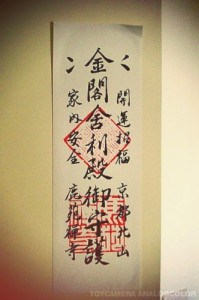 開運招福 京都北山
金閣舎利殿御守護
家内安全 鹿苑禅寺
TOYCAMERA ANALOGCOLOR